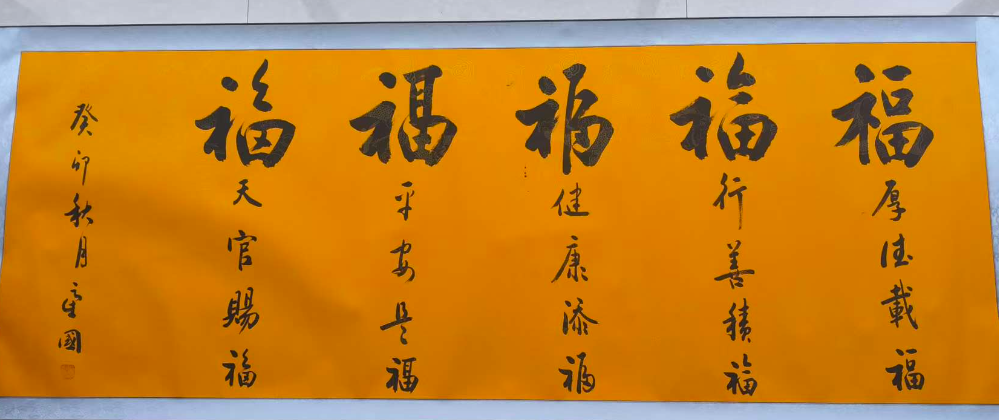 福
厚德載福
福
行善積福
福
健康添福
福
平安是福
福
天官賜福
癸卯秋月
國